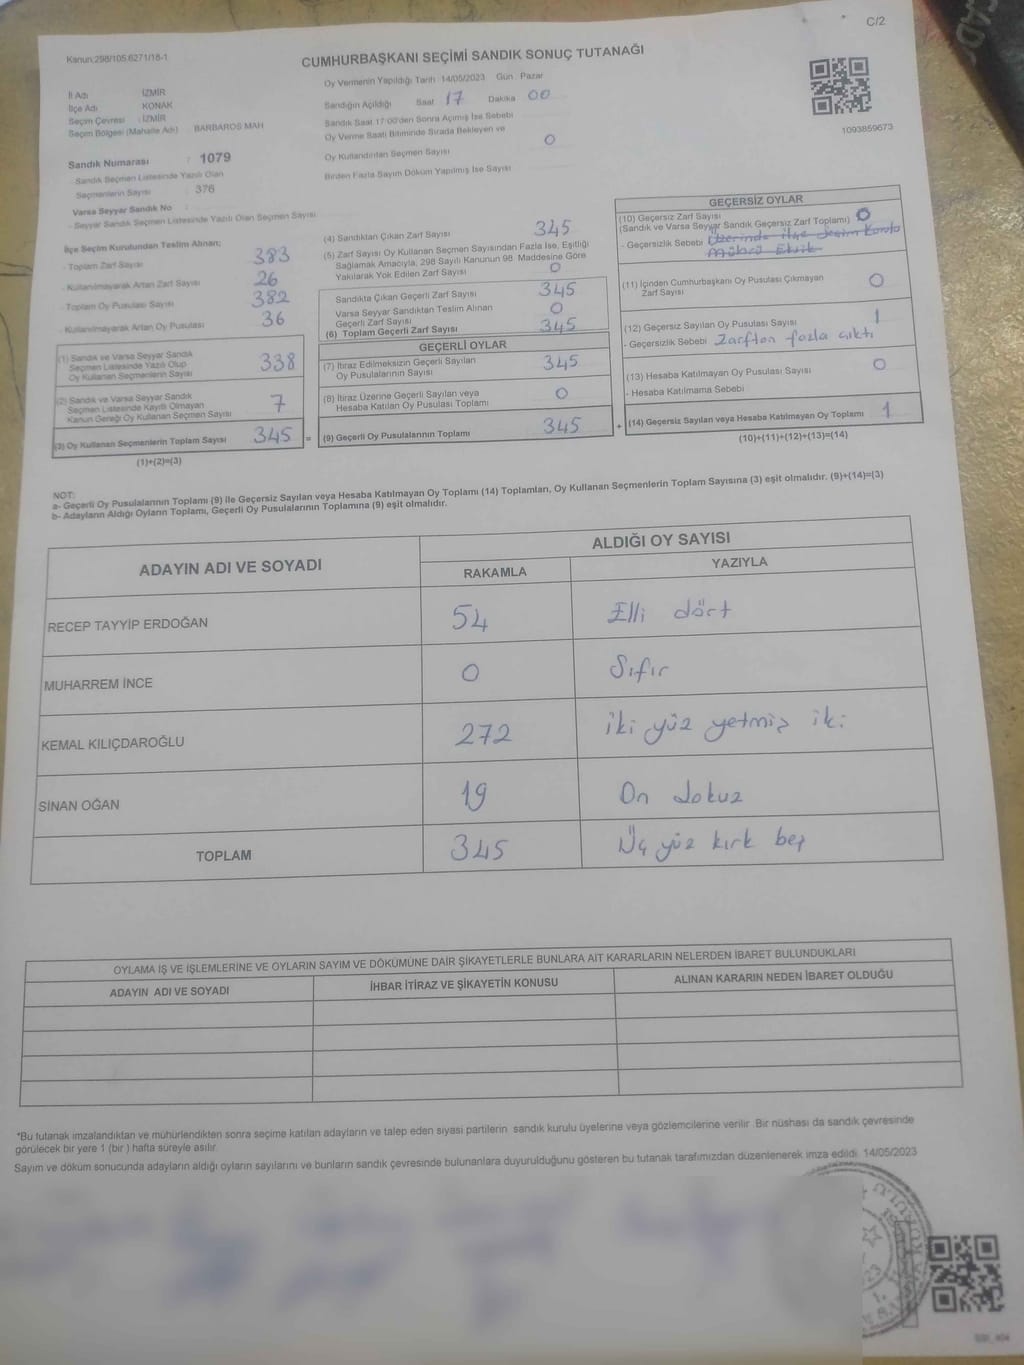 C/2
Kanun:298/105.6271/18-1
CUMHURBAŞKANI SEÇİMİ SANDIK SONUÇ TUTANAĞI
İl Adı : İZMİR
İlçe Adı : KONAK
Seçim Çevresi : İZMİR
Seçim Bölgesi (Mahalle Adı) : BARBAROS MAH
Oy Vermenin Yapıldığı Tarih :14/05/2023 Gün : Pazar
Sandığın Açıldığı Saat 17 Dakika 00
Sandık Saat 17:00'den Sonra Açımış İse Sebebi
Oy Verme Saati Bitiminde Sırada Bekleyen ve
Oy Kullandırılan Seçmen Sayısı 0
Birden Fazla Sayım Döküm Yapılmış İse Sayısı
1093859673
Sandık Numarası : 1079
- Sandık Seçmen Listesinde Yazılı Olan
Seçmenlerin Sayısı : 376
Varsa Seyyar Sandık No :
- Seyyar Sandık Seçmen Listesinde Yazılı Olan Seçmen Sayısı:
İlçe Seçim Kurulundan Teslim Alınan;
- Toplam Zarf Sayısı 383
- Kullanılmayarak Artan Zarf Sayısı 26
- Toplam Oy Pusulası Sayısı 382
- Kullanılmayarak Artan Oy Pusulası 36
(1) Sandık ve Varsa Seyyar Sandık
Seçmen Listesinde Yazılı Olup
Oy Kullanan Seçmenlerin Sayısı 338
(2) Sandık ve Varsa Seyyar Sandık
Seçmen Listesinde Kayıtlı Olmayan
Kanun Gereği Oy Kullanan Seçmen Sayısı 7
(3) Oy Kullanan Seçmenlerin Toplam Sayısı 345 =
(1)+(2)=(3)
(4) Sandıktan Çıkan Zarf Sayısı 345
(5) Zarf Sayısı Oy Kullanan Seçmen Sayısından Fazla İse, Eşitliği
Sağlamak Amacıyla, 298 Sayılı Kanunun 98. Maddesine Göre
Yakılarak Yok Edilen Zarf Sayısı 0
Sandıkta Çıkan Geçerli Zarf Sayısı 345
Varsa Seyyar Sandıktan Teslim Alınan
Geçerli Zarf Sayısı 0
(6) Toplam Geçerli Zarf Sayısı 345
GEÇERLİ OYLAR
(7) İtiraz Edilmeksizin Geçerli Sayılan
Oy Pusulalarının Sayısı 345
(8) İtiraz Üzerine Geçerli Sayılan veya
Hesaba Katılan Oy Pusulası Toplamı 0
(9) Geçerli Oy Pusulalarının Toplamı 345 +
GEÇERSİZ OYLAR
(10) Geçersiz Zarf Sayısı
(Sandık ve Varsa Seyyar Sandık Geçersiz Zarf Toplamı) 0
- Geçersizlik Sebebi Üzerinde ilçe Seçim Kurulu
Mührü Eksik
(11) İçinden Cumhurbaşkanı Oy Pusulası Çıkmayan
Zarf Sayısı 0
(12) Geçersiz Sayılan Oy Pusulası Sayısı 1
- Geçersizlik Sebebi Zarftan fazla çıktı
(13) Hesaba Katılmayan Oy Pusulası Sayısı 0
- Hesaba Katılmama Sebebi
(14) Geçersiz Sayılan veya Hesaba Katılmayan Oy Toplamı 1
(10)+(11)+(12)+(13)=(14)
NOT:
a- Geçerli Oy Pusulalarının Toplamı (9) ile Geçersiz Sayılan veya Hesaba Katılmayan Oy Toplamı (14) Toplamları, Oy Kullanan Seçmenlerin Toplam Sayısına (3) eşit olmalıdır. (9)+(14)=(3)
b- Adayların Aldığı Oyların Toplamı, Geçerli Oy Pusulalarının Toplamına (9) eşit olmalıdır.
ADAYIN ADI VE SOYADI ALDIĞI OY SAYISI
RAKAMLA YAZIYLA
RECEP TAYYİP ERDOĞAN 54 Elli dört
MUHARREM İNCE 0 Sıfır
KEMAL KILIÇDAROĞLU 272 iki yüz yetmiş iki
SİNAN OĞAN 19 On dokuz
TOPLAM 345 Üç yüz kırk beş
OYLAMA İŞ VE İŞLEMLERİNE VE OYLARIN SAYIM VE DÖKÜMÜNE DAİR ŞİKAYETLERLE BUNLARA AİT KARARLARIN NELERDEN İBARET BULUNDUKLARI
ADAYIN ADI VE SOYADI İHBAR İTİRAZ VE ŞİKAYETİN KONUSU ALINAN KARARIN NEDEN İBARET OLDUĞU
*Bu tutanak imzalandıktan ve mühürlendikten sonra seçime katılan adayların ve talep eden siyasi partilerin sandık kurulu üyelerine veya gözlemcilerine verilir. Bir nüshası da sandık çevresinde
görülecek bir yere 1 (bir ) hafta süreyle asılır.
Sayım ve döküm sonucunda adayların aldığı oyların sayılarını ve bunların sandık çevresinde bulunanlara duyurulduğunu gösteren bu tutanak tarafımızdan düzenlenerek imza edildi. 14/05/2023